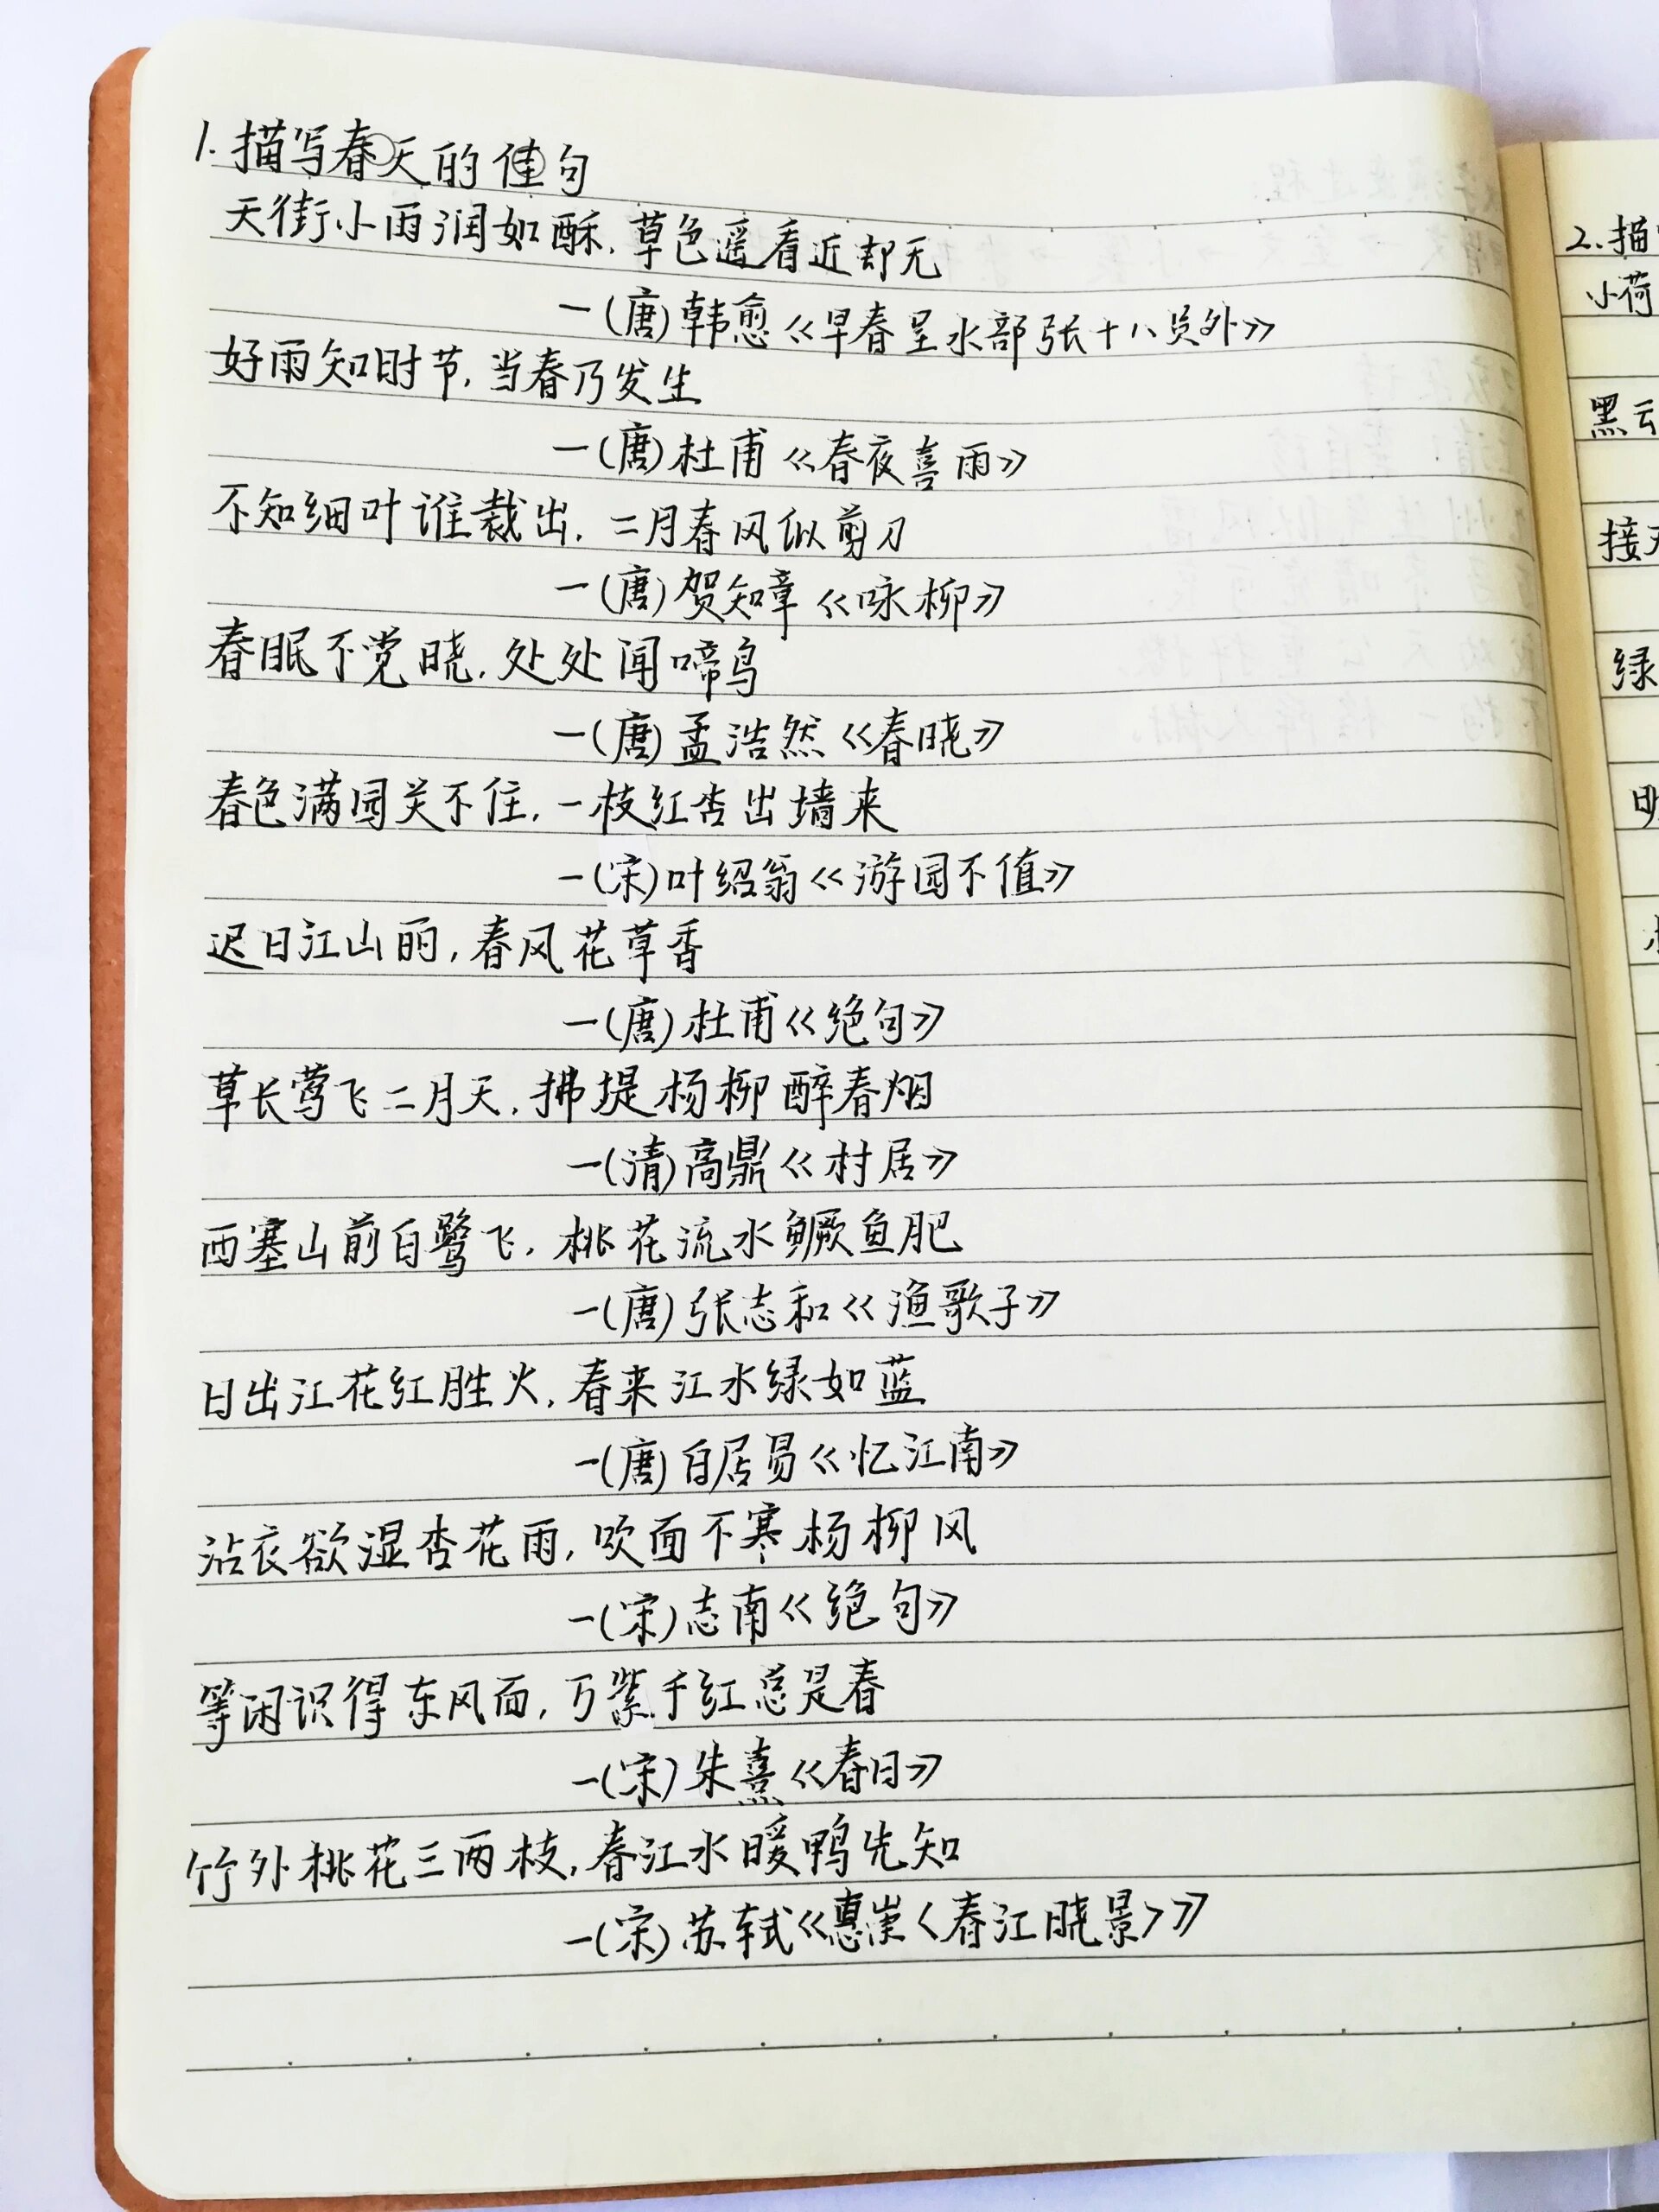 1. 描写春天的佳句
天街小雨润如酥,草色遥看近却无
—(唐)韩愈《早春呈水部张十八员外》
好雨知时节,当春乃发生
—(唐)杜甫《春夜喜雨》
不知细叶谁裁出,二月春风似剪刀
—(唐)贺知章《咏柳》
春眠不觉晓,处处闻啼鸟
—(唐)孟浩然《春晓》
春色满园关不住,一枝红杏出墙来
—(宋)叶绍翁《游园不值》
迟日江山丽,春风花草香
—(唐)杜甫《绝句》
草长莺飞二月天,拂堤杨柳醉春烟
—(清)高鼎《村居》
西塞山前白鹭飞,桃花流水鳜鱼肥
—(唐)张志和《渔歌子》
日出江花红胜火,春来江水绿如蓝
—(唐)白居易《忆江南》
沾衣欲湿杏花雨,吹面不寒杨柳风
—(宋)志南《绝句》
等闲识得东风面,万紫千红总是春
—(宋)朱熹《春日》
竹外桃花三两枝,春江水暖鸭先知
—(宋)苏轼《惠崇〈春江晓景〉》
2.描
小荷
黑云
接天
绿